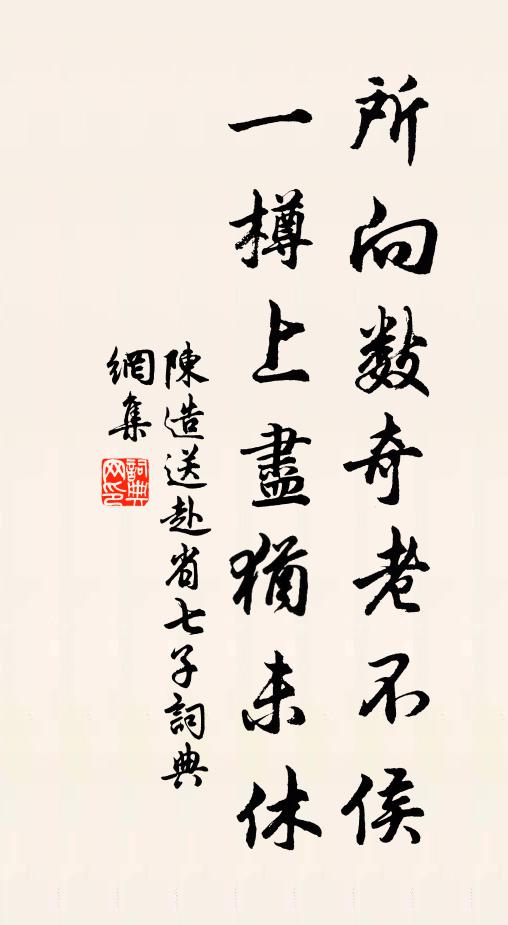 所向數奇老不侯
一樽上盡猶未休
陳造送赴省七子詞典
網集
詞典
网印